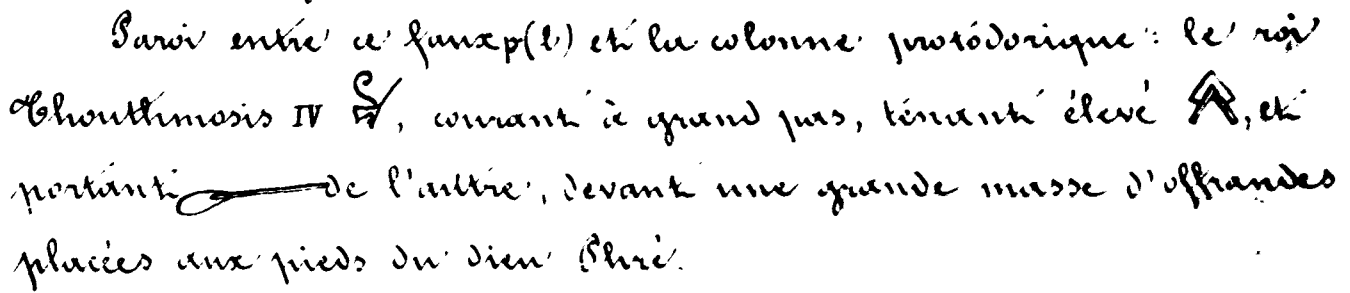 Paroi entre ce faux p(l) et la colonne protódorique : le roi
Thouthmosis IV , courant à grand pas, tenant élevé , et
portant de l'autre, devant une grande masse d'offrandes
placées aux pieds du dieu Phré.